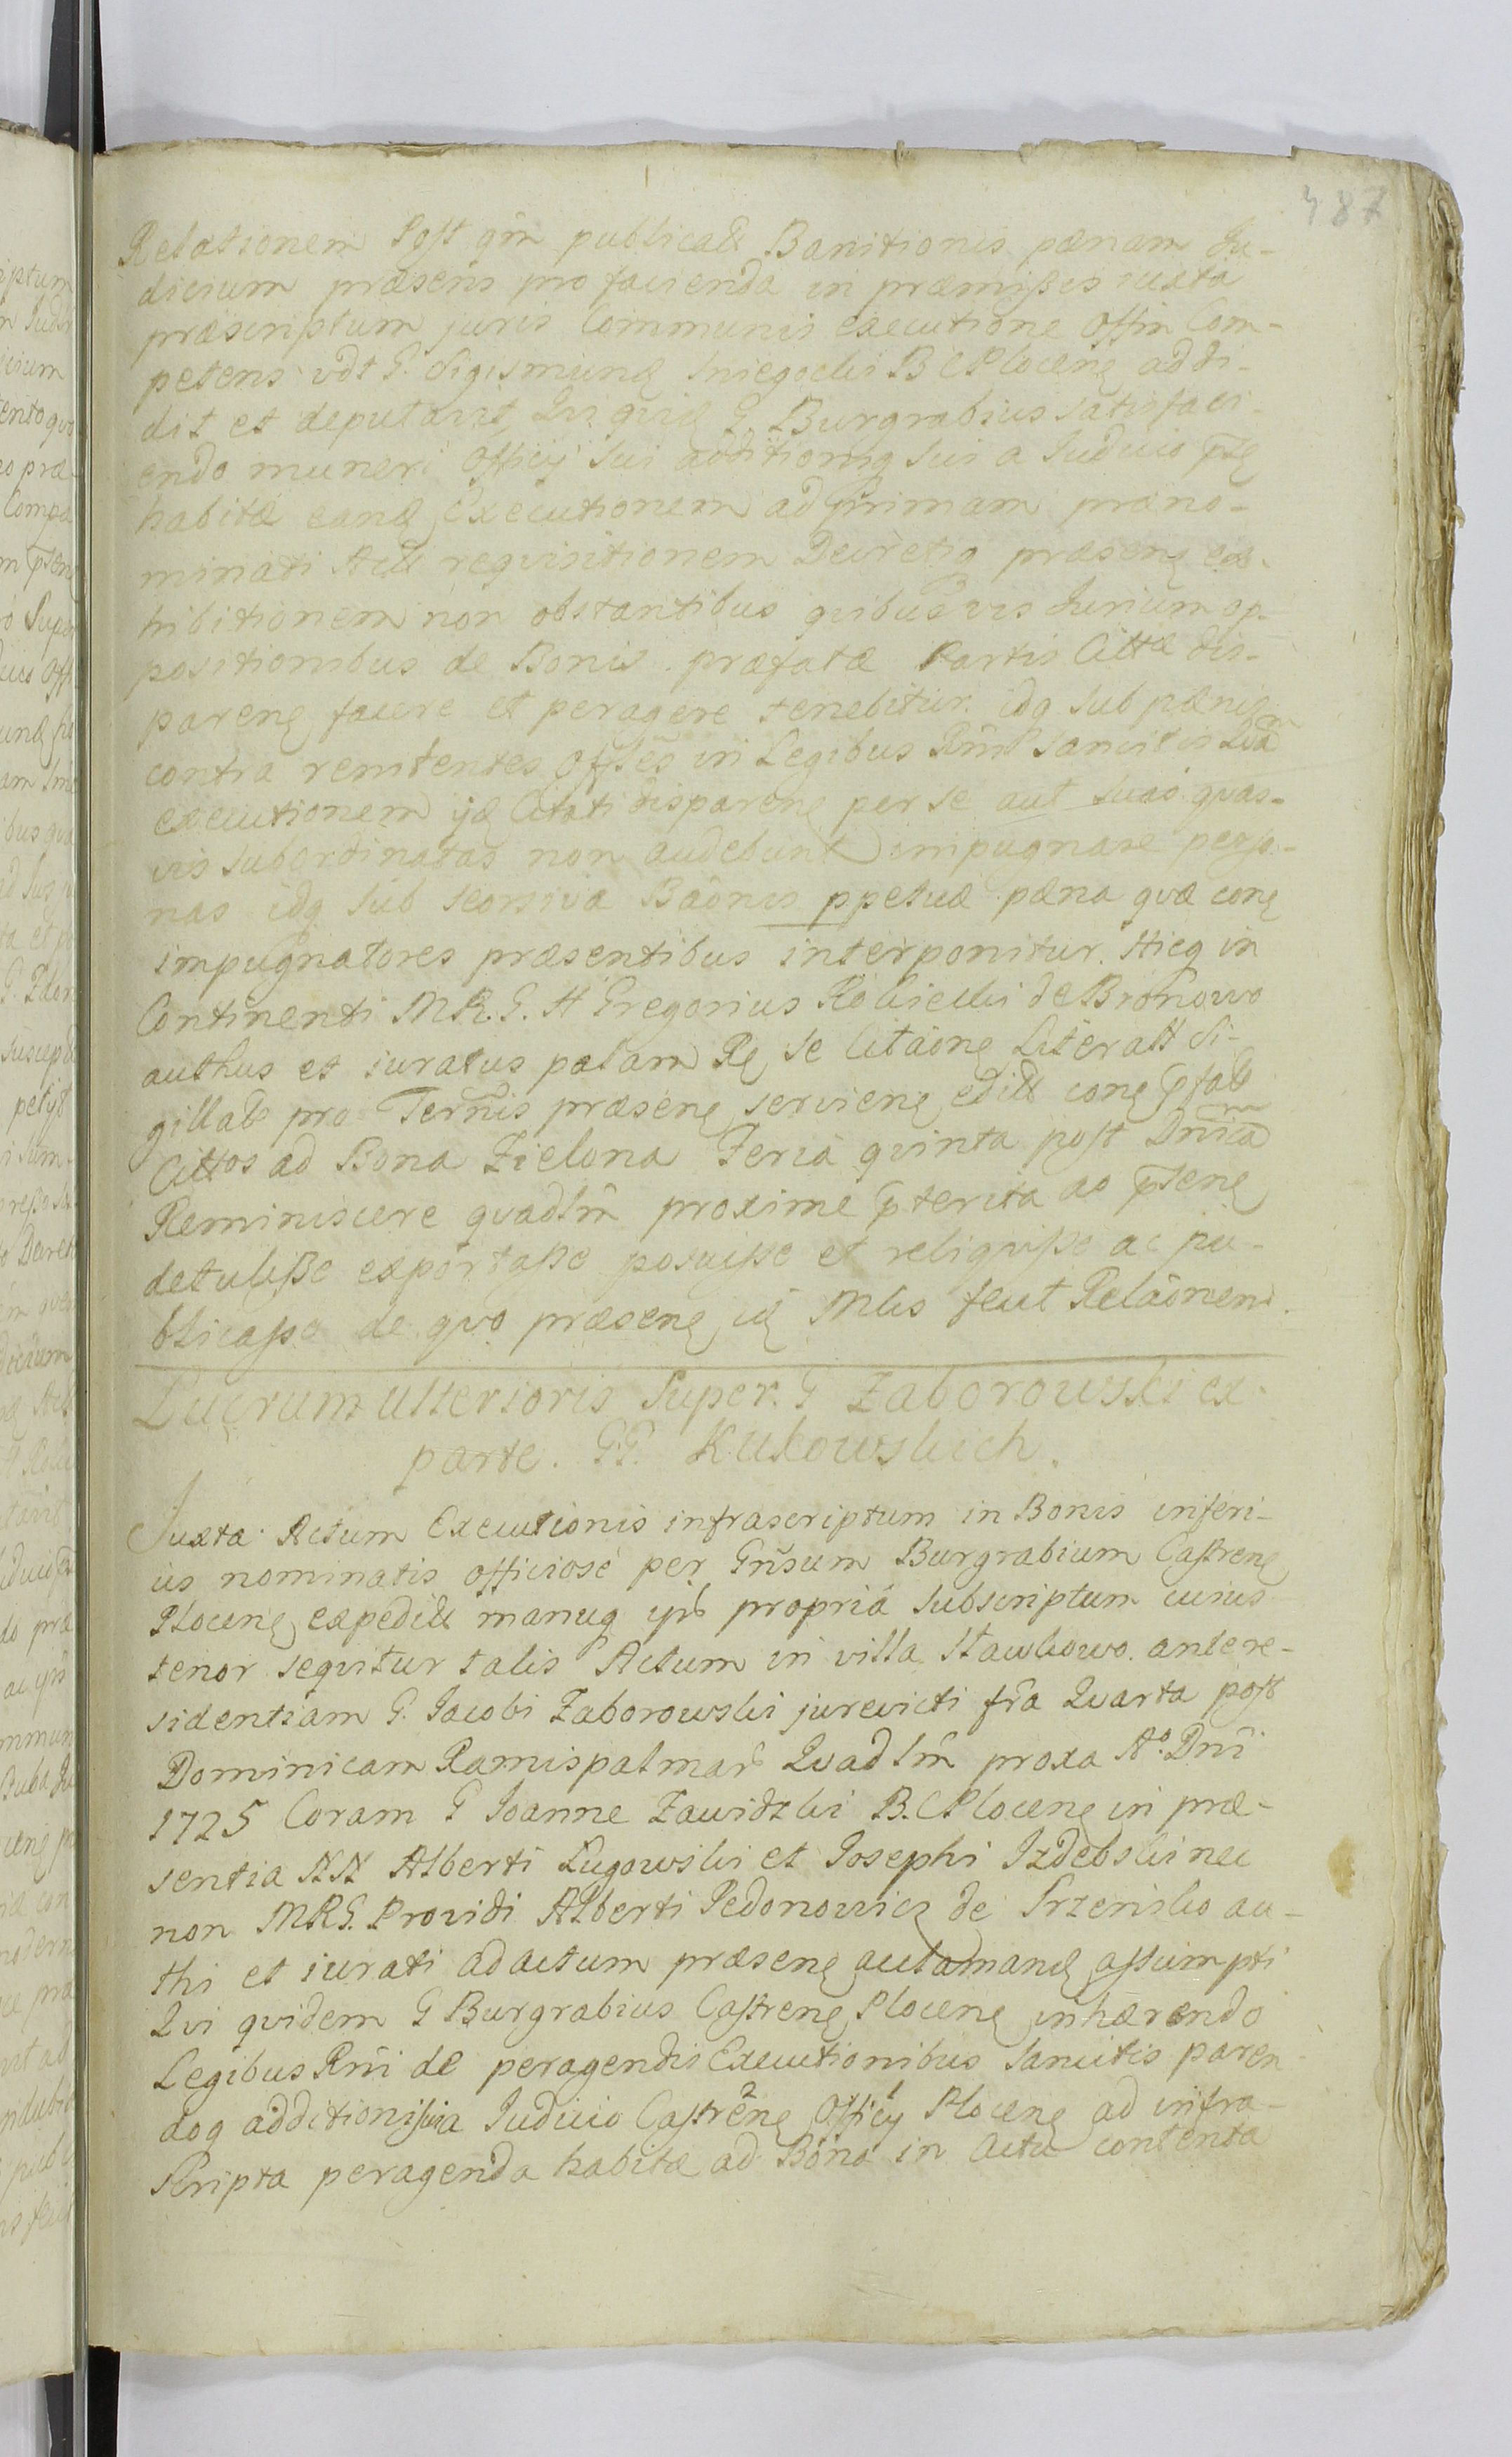 487
Relationem Post qm̃ publicatã Banitionis pænam Ju-
dicium præsens pro facienda in præmißis iuxta
præscriptum juris Communis executione Offm̃ Com-
petens vdt G. Sigismund Sniegocki B C Plocens addi-
dit et deputavit Qui quid G. Burgrabius satisfaci-
endo muneri Officij sui additioniq sui a Judicio
habitæ eand Executionem ad primam præno-
minati requisitionem Decretiq præsens ex-
hibitionem non obstantibus quibusvis Jurium op-
positionibus de Bonis præfatæ Partis Cittæ dis-
parens facere et peragere tenebitur idq sub pænis
contra renitentes Offles in Legibus Rni sancitis Quam
executionem ijd Citati disparens per se aut suas quas-
vis subordinatas non audebunt impugnare perso-
nas idq sub seorsiva Baõnis ppetuæ pæna quæ cons
impugnatores præsentibus interponitur. Hicq in
Continenti M R. G. H Gregorius Kobiecki de Bronowo
authus et iuratus palam Rs se Citãone Literatt Si-
gillatt pro Ter̃nis præsens serviens editt cons
Cittos ad Bona Zielona Feria quinta post Dnicam
Reminiscere quadlm̃ proxime pterita ao psens
detulißse exportaße posuiße et reliquiße ac pu-
blicaße de quo præsens id Mlis fecit Relaõnem.
Lucrum ulterioris Super. G Zaborowski ex
parte. GG. Kukowskich.
Juxta Actum Executionis infrascriptum in Bonis inferi-
us nominatis officiosé per Gñsum Burgrabium Castrens
Plocens expeditt manuq propriá subscriptum cuius
tenor sequitur talis Actum in villa Stawkowo antere-
sidentiam G. Jacobi Zaborowski jurevicti fr̃a Quarta post
Dominicam Ramispalmar Quadlm̃ proxa Aº. Dñi
1725 Coram G Joanne Zawidzki B. C Plocens in præ-
sentia NN Alberti Lugowski et Josephi Jzdebski nec
non MRG. Providi Alberti Pedonowicz de Srzensko au-
thi et iurati ad actum præsens assumpti
Qui quidem G Burgrabius Castrens Plocens inhærendo
Legibus Rni de peragendis Executionibus sancitis paren-
doq additioni sua Judicio Castrens Officij Plocens ad infra-
scripta peragenda habitæ ad Bona in Actu contenta